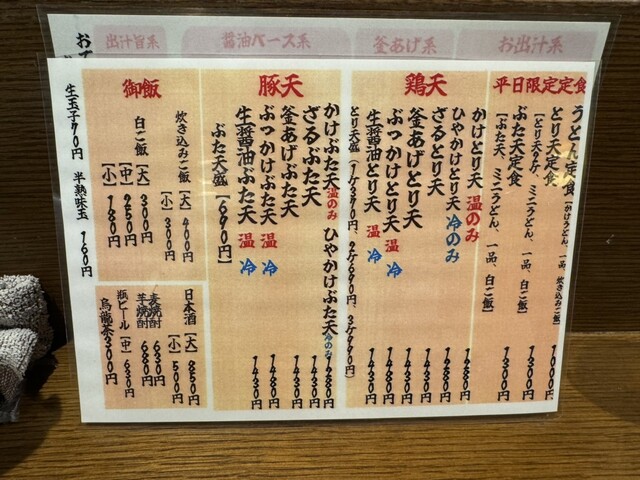 お出汁系
釜あげ系
醤油ベース系
出汁旨系
平日限定定食
うどん定食(かけうどん、一品、炊き込みご飯) 1000円
とり天定食 1300円
(とり天2ケ、ミニうどん、一品、白ご飯)
ぶた天定食 1300円
(ぶた天、ミニうどん、一品、白ご飯)
鶏天
かけとり天 温のみ 1280円
ひやかけとり天 冷のみ 1280円
ざるとり天 1430円
釜あげとり天 1430円
ぶっかけとり天 温 冷 1480円
生醤油とり天 温 冷 1430円
とり天盛(1ケ370円、2ケ690円、3ケ990円)
豚天
かけぶた天 温のみ ひやかけぶた天 冷のみ 1280円
ざるぶた天 1430円
釜あげぶた天 1430円
ぶっかけぶた天 温 冷 1480円
生醤油ぶた天 温 冷 1430円
ぶた天盛【690円】
御飯
炊き込みご飯【大】400円
【小】300円
白ご飯【大】300円
【中】250円
【小】180円
日本酒【大】950円
【小】500円
麦焼酎 630円
芋焼酎 680円
瓶ビール【中】630円
烏龍茶300円
生玉子70円 半熟味玉 160円